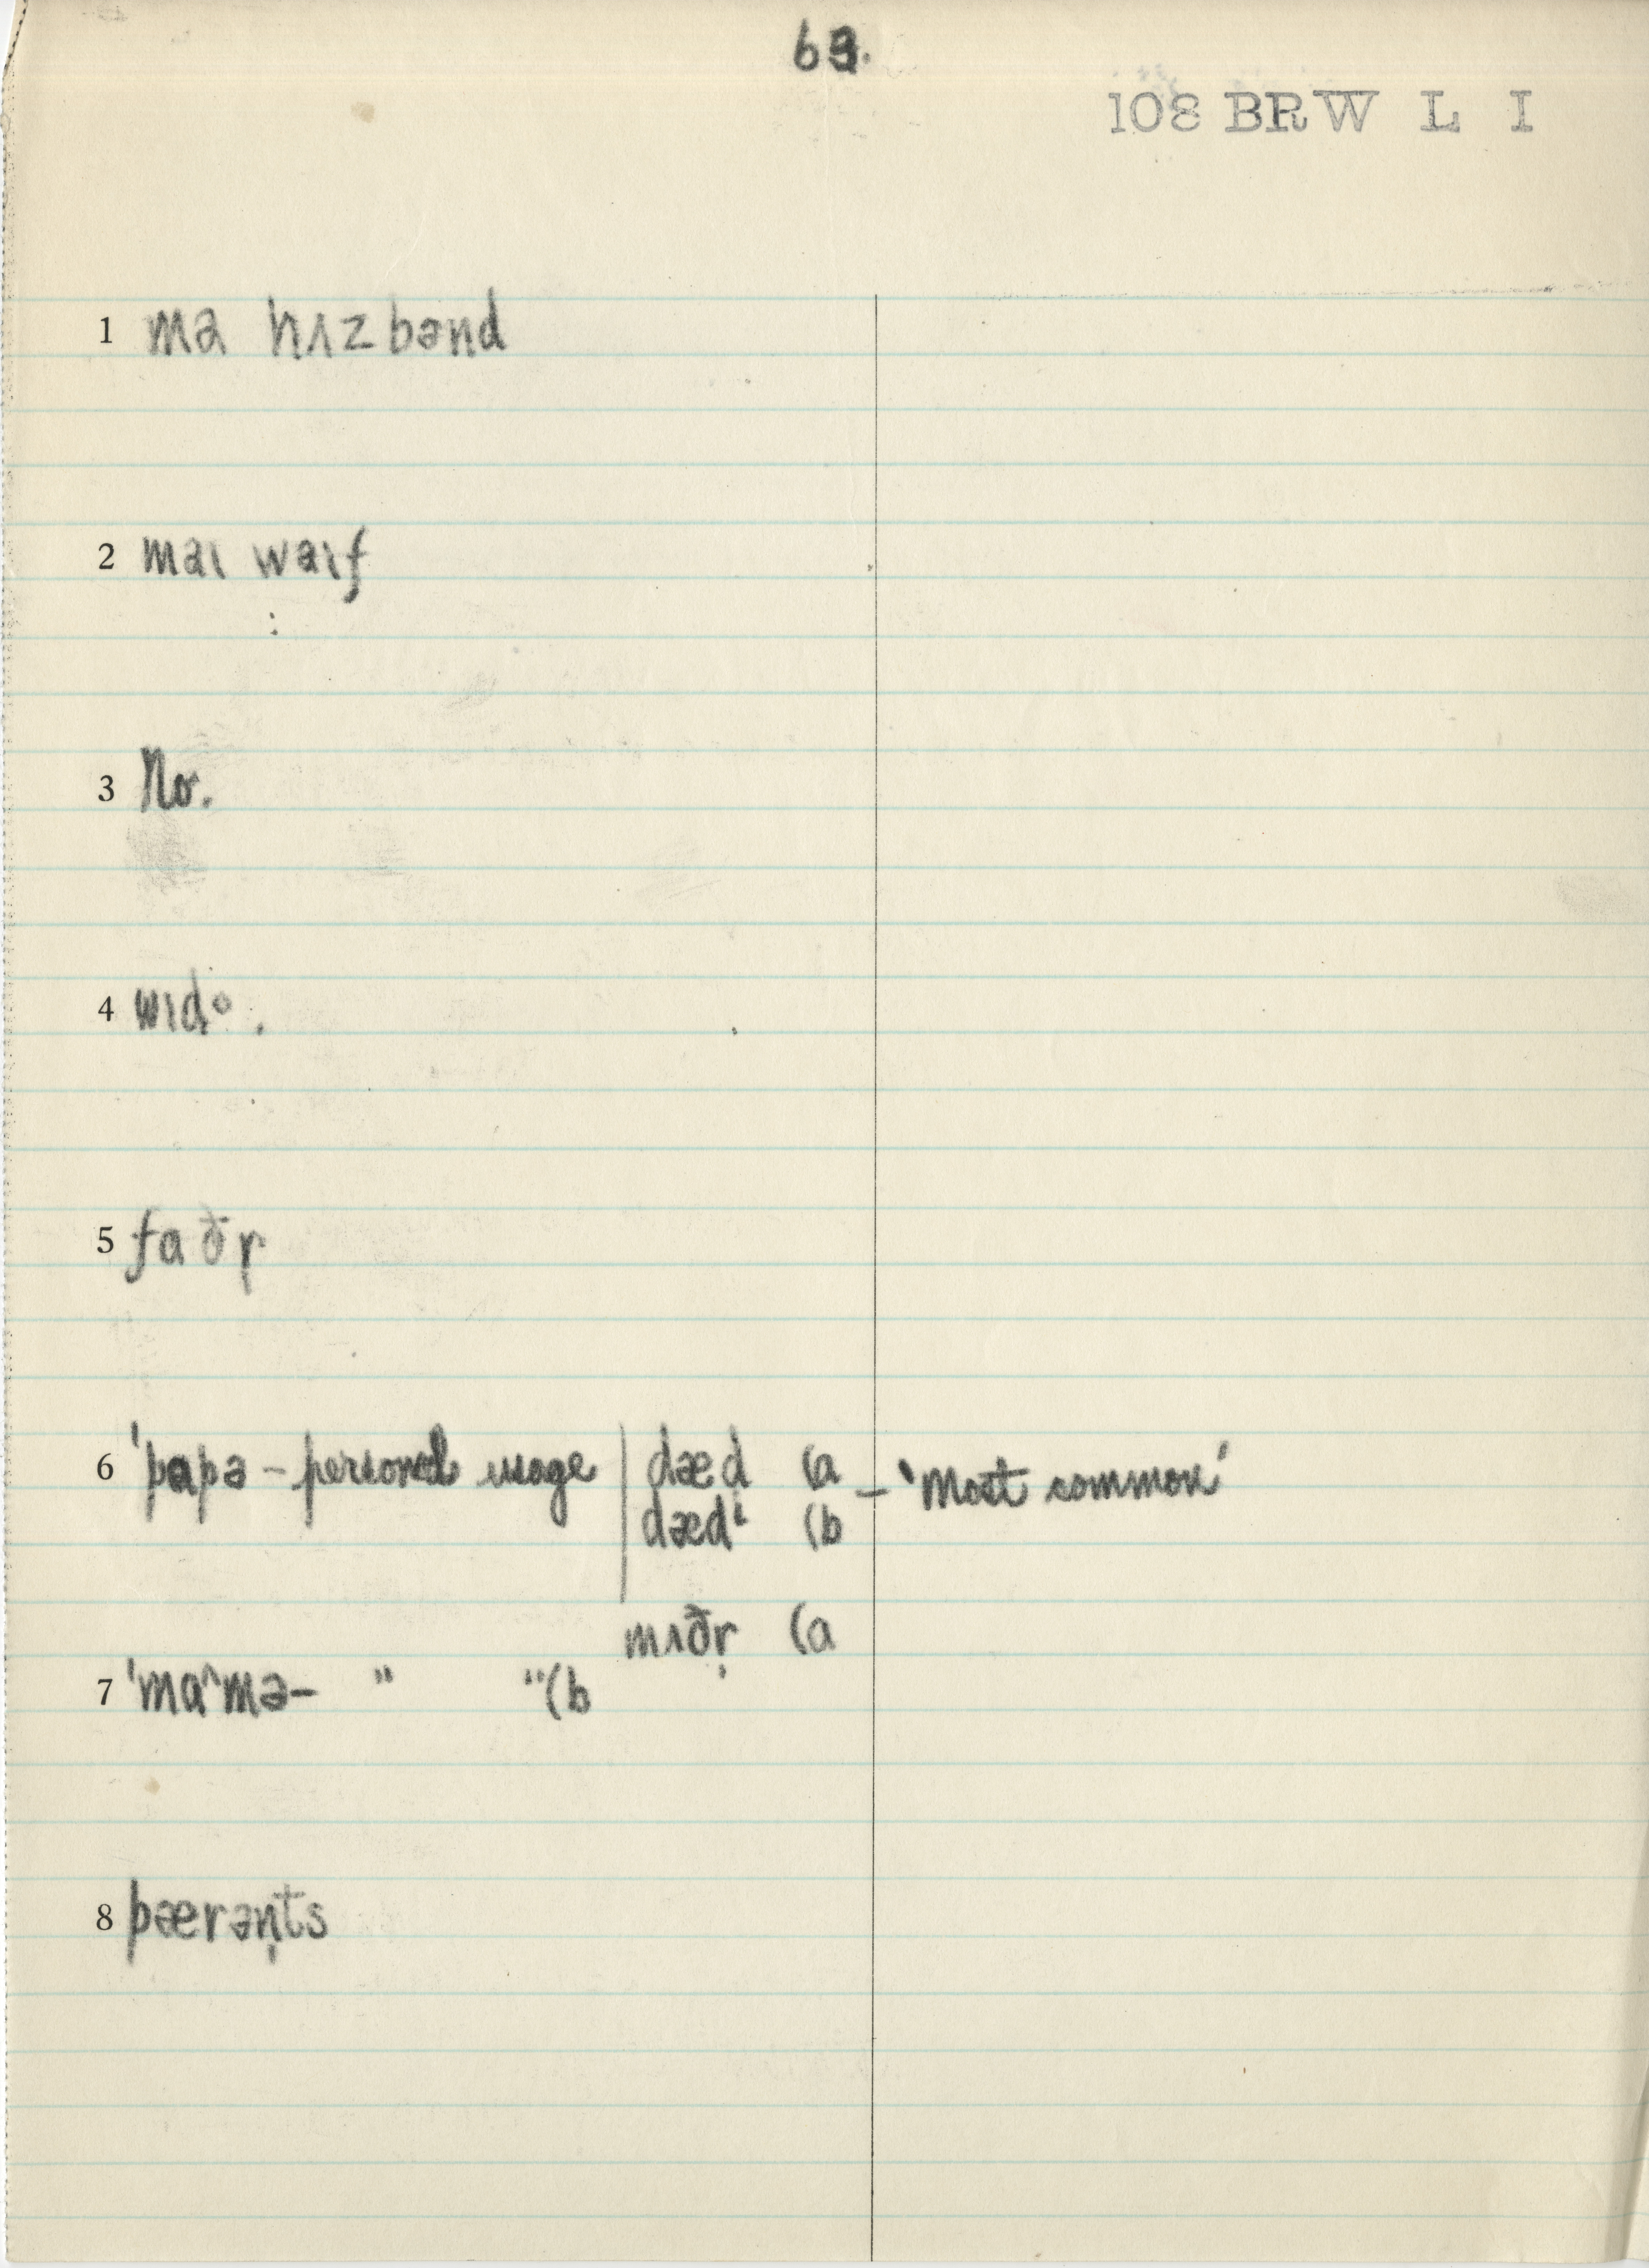 63.
108 BRW L I
1 ma hʌzbənd
2 maɪ waɪf
:
3 No.
4 wɪdᵒ.
5 faðr̩
6 'papə – personal usage | dæd (a – 'Most common'
dædⁱ (b
mʌðr̩ (a
7 'ma^mə – " " (b
8 pærən̩ts